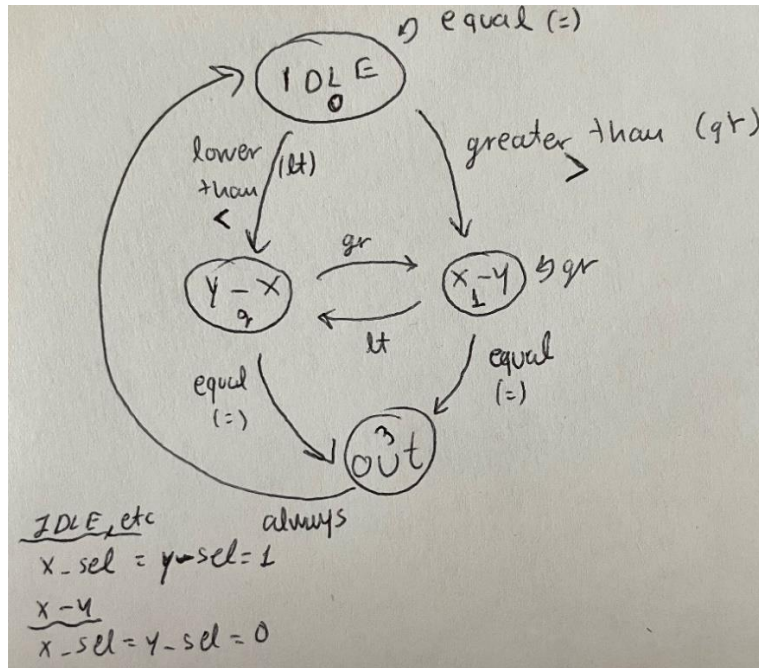 equal (=)
IDLE
0
lower than (lt)
<
greater than (gr)
>
gr
Y - X
2
X - Y
1
gr
lt
equal
(=)
equal
(=)
3
OUT
always
IDLE, etc
x_sel = y_sel = 1
x - y
x_sel = y_sel = 0